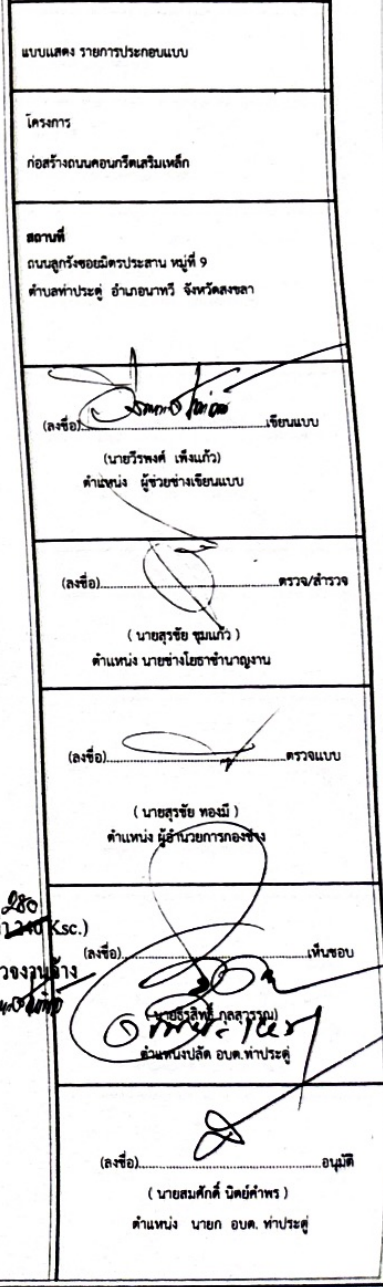 แบบแสดง รายการประกอบแบบ
โครงการ
ก่อสร้างถนนคอนกรีตเสริมเหล็ก
สถานที่
ถนนลูกรังซอยมิตรประสาน หมู่ที่ 9
ตำบลท่าประดู่ อำเภอนาทวี จังหวัดสงขลา
(ลงชื่อ)............................................เขียนแบบ
(นายวีรพงศ์ เพ็งแก้ว)
ตำแหน่ง ผู้ช่วยช่างเขียนแบบ
(ลงชื่อ)............................................ตรวจ/สำรวจ
( นายสุรชัย ชุมแก้ว )
ตำแหน่ง นายช่างโยธาชำนาญงาน
(ลงชื่อ)............................................ตรวจแบบ
( นายสุรชัย ทองมี )
ตำแหน่ง ผู้อำนวยการกองช่าง
280
240 Ksc.)
(ลงชื่อ)............................................เห็นชอบ
กุลสุวรรณ)
ตำแหน่งปลัด อบต.ท่าประดู่
(ลงชื่อ)............................................อนุมัติ
( นายสมศักดิ์ นิตย์คำพร )
ตำแหน่ง นายก อบต. ท่าประดู่